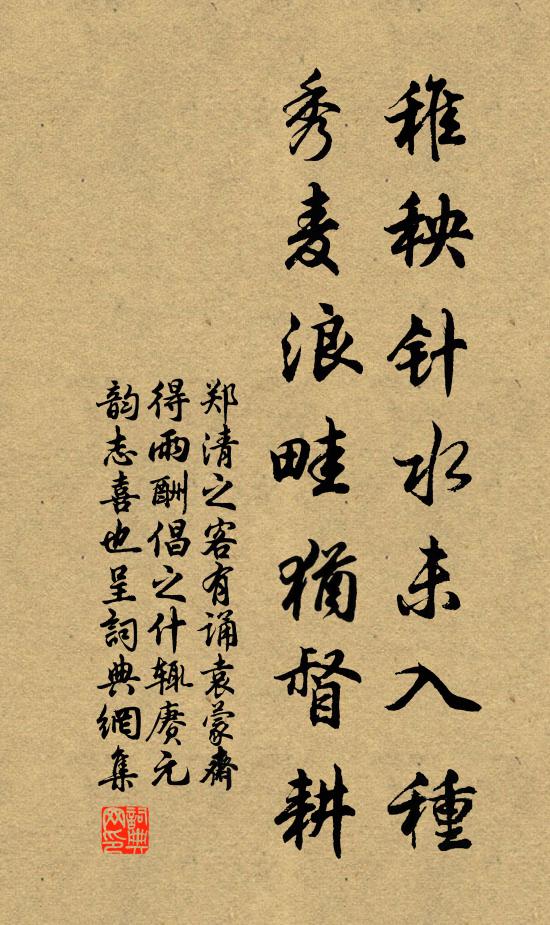 稚秧针水未入種
秀麦浪畦猶督耕
郑清之客有诵袁蒙齋
得雨酬倡之什辄赓元
韵志喜也呈詞典網集
詞典
网印